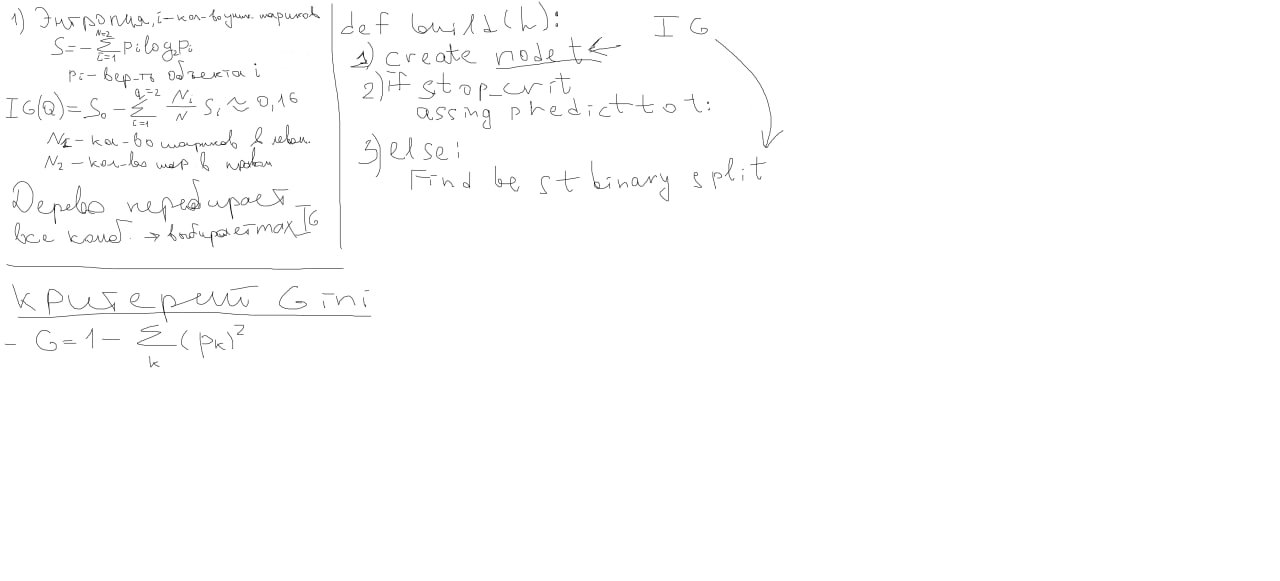 1) Энтропия, i-кол-во уник. шариков
S = - Σ_{i=1}^{N=2} p_i log_2 p_i
p_i - вер-ть объекта i
IG(Q) = S_0 - Σ_{i=1}^{q=2} N_i/N S_i ≈ 0,16
N_1 - кол-во шариков в левом.
N_2 - кол-во шар в правом
Дерево перебирает
все комб. → выбирает max IG
Критерий Gini
- G = 1 - Σ_k (p_k)^2
def build(L):
1) create node t ←
2) if stop_crit
assing predict to t:
3) else:
Find best binary split
IG